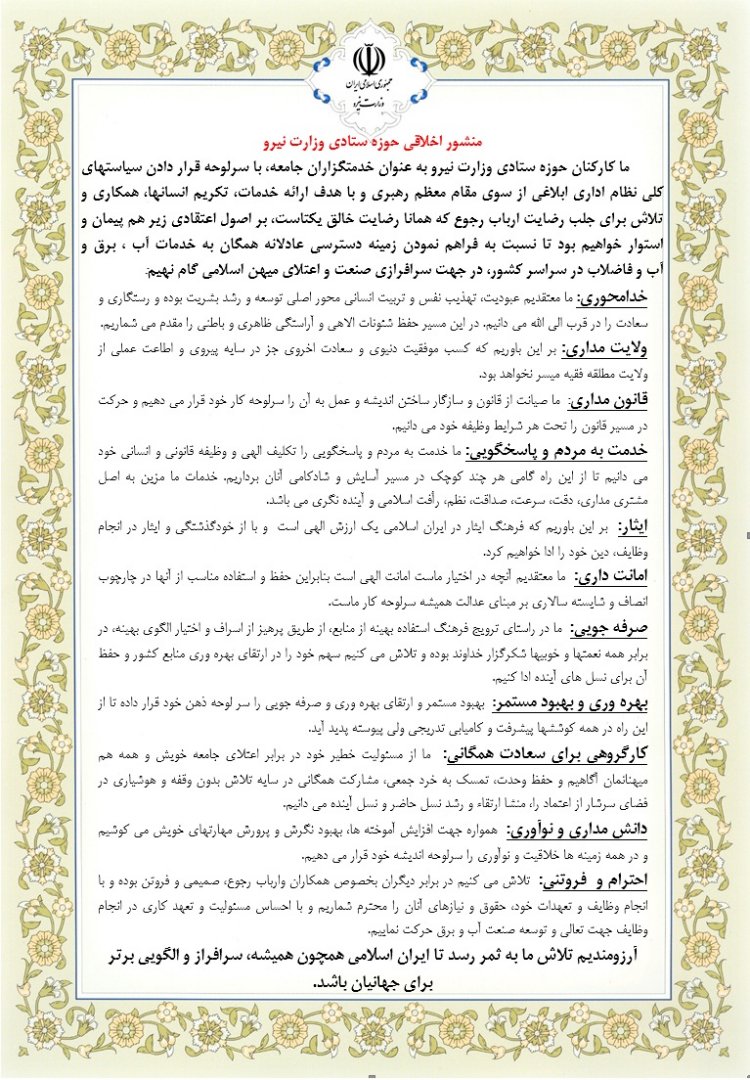 جمهوری اسلامی ایران
وزارت نیرو
منشور اخلاقی حوزه ستادی وزارت نیرو
ما کارکنان حوزه ستادی وزارت نیرو به عنوان خدمتگزاران جامعه، با سرلوحه قرار دادن سیاستهای
کلی نظام اداری ابلاغی از سوی مقام معظم رهبری و با هدف ارائه خدمات، تکریم انسانها، همکاری و
تلاش برای جلب رضایت ارباب رجوع که همانا رضایت خالق یکتاست، بر اصول اعتقادی زیر هم پیمان و
استوار خواهیم بود تا نسبت به فراهم نمودن زمینه دسترسی عادلانه همگان به خدمات آب ، برق و
آب و فاضلاب در سراسر کشور، در جهت سرافرازی صنعت و اعتلای میهن اسلامی گام نهیم:
خدامحوری: ما معتقدیم عبودیت، تهذیب نفس و تربیت انسانی محور اصلی توسعه و رشد بشریت بوده و رستگاری و
سعادت را در قرب الی الله می دانیم. در این مسیر حفظ شئونات الاهی و آراستگی ظاهری و باطنی را مقدم می شماریم.
ولایت مداری: بر این باوریم که کسب موفقیت دنیوی و سعادت اخروی جز در سایه پیروی و اطاعت عملی از
ولایت مطلقه فقیه میسر نخواهد بود.
قانون مداری: ما صیانت از قانون و سازگار ساختن اندیشه و عمل به آن را سرلوحه کار خود قرار می دهیم و حرکت
در مسیر قانون را تحت هر شرایط وظیفه خود می دانیم.
خدمت به مردم و پاسخگویی: ما خدمت به مردم و پاسخگویی را تکلیف الهی و وظیفه قانونی و انسانی خود
می دانیم تا از این راه گامی هر چند کوچک در مسیر آسایش و شادکامی آنان برداریم. خدمات ما مزین به اصل
مشتری مداری، دقت، سرعت، صداقت، نظم، رأفت اسلامی و آینده نگری می باشد.
ایثار: بر این باوریم که فرهنگ ایثار در ایران اسلامی یک ارزش الهی است و با از خودگذشتگی و ایثار در انجام
وظایف، دین خود را ادا خواهیم کرد.
امانت داری: ما معتقدیم آنچه در اختیار ماست امانت الهی است بنابراین حفظ و استفاده مناسب از آنها در چارچوب
انصاف و شایسته سالاری بر مبنای عدالت همیشه سرلوحه کار ماست.
صرفه جویی: ما در راستای ترویج فرهنگ استفاده بهینه از منابع، از طریق پرهیز از اسراف و اختیار الگوی بهینه، در
برابر همه نعمتها و خوبیها شکرگزار خداوند بوده و تلاش می کنیم سهم خود را در ارتقای بهره وری منابع کشور و حفظ
آن برای نسل های آینده ادا کنیم.
بهره وری و بهبود مستمر: بهبود مستمر و ارتقای بهره وری و صرفه جویی را سر لوحه ذهن خود قرار داده تا از
این راه در همه کوششها پیشرفت و کامیابی تدریجی ولی پیوسته پدید آید.
کارگروهی برای سعادت همگانی: ما از مسئولیت خطیر خود در برابر اعتلای جامعه خویش و همه هم
میهنانمان آگاهیم و حفظ وحدت، تمسک به خرد جمعی، مشارکت همگانی در سایه تلاش بدون وقفه و هوشیاری در
فضای سرشار از اعتماد را، منشا ارتقاء و رشد نسل حاضر و نسل آینده می دانیم.
دانش مداری و نوآوری: همواره جهت افزایش آموخته ها، بهبود نگرش و پرورش مهارتهای خویش می کوشیم
و در همه زمینه ها خلاقیت و نوآوری را سرلوحه اندیشه خود قرار می دهیم.
احترام و فروتنی: تلاش می کنیم در برابر دیگران بخصوص همکاران وارباب رجوع، صمیمی و فروتن بوده و با
انجام وظایف و تعهدات خود، حقوق و نیازهای آنان را محترم شماریم و با احساس مسئولیت و تعهد کاری در انجام
وظایف جهت تعالی و توسعه صنعت آب و برق حرکت نماییم.
آرزومندیم تلاش ما به ثمر رسد تا ایران اسلامی همچون همیشه، سرافراز و الگویی برتر
برای جهانیان باشد.